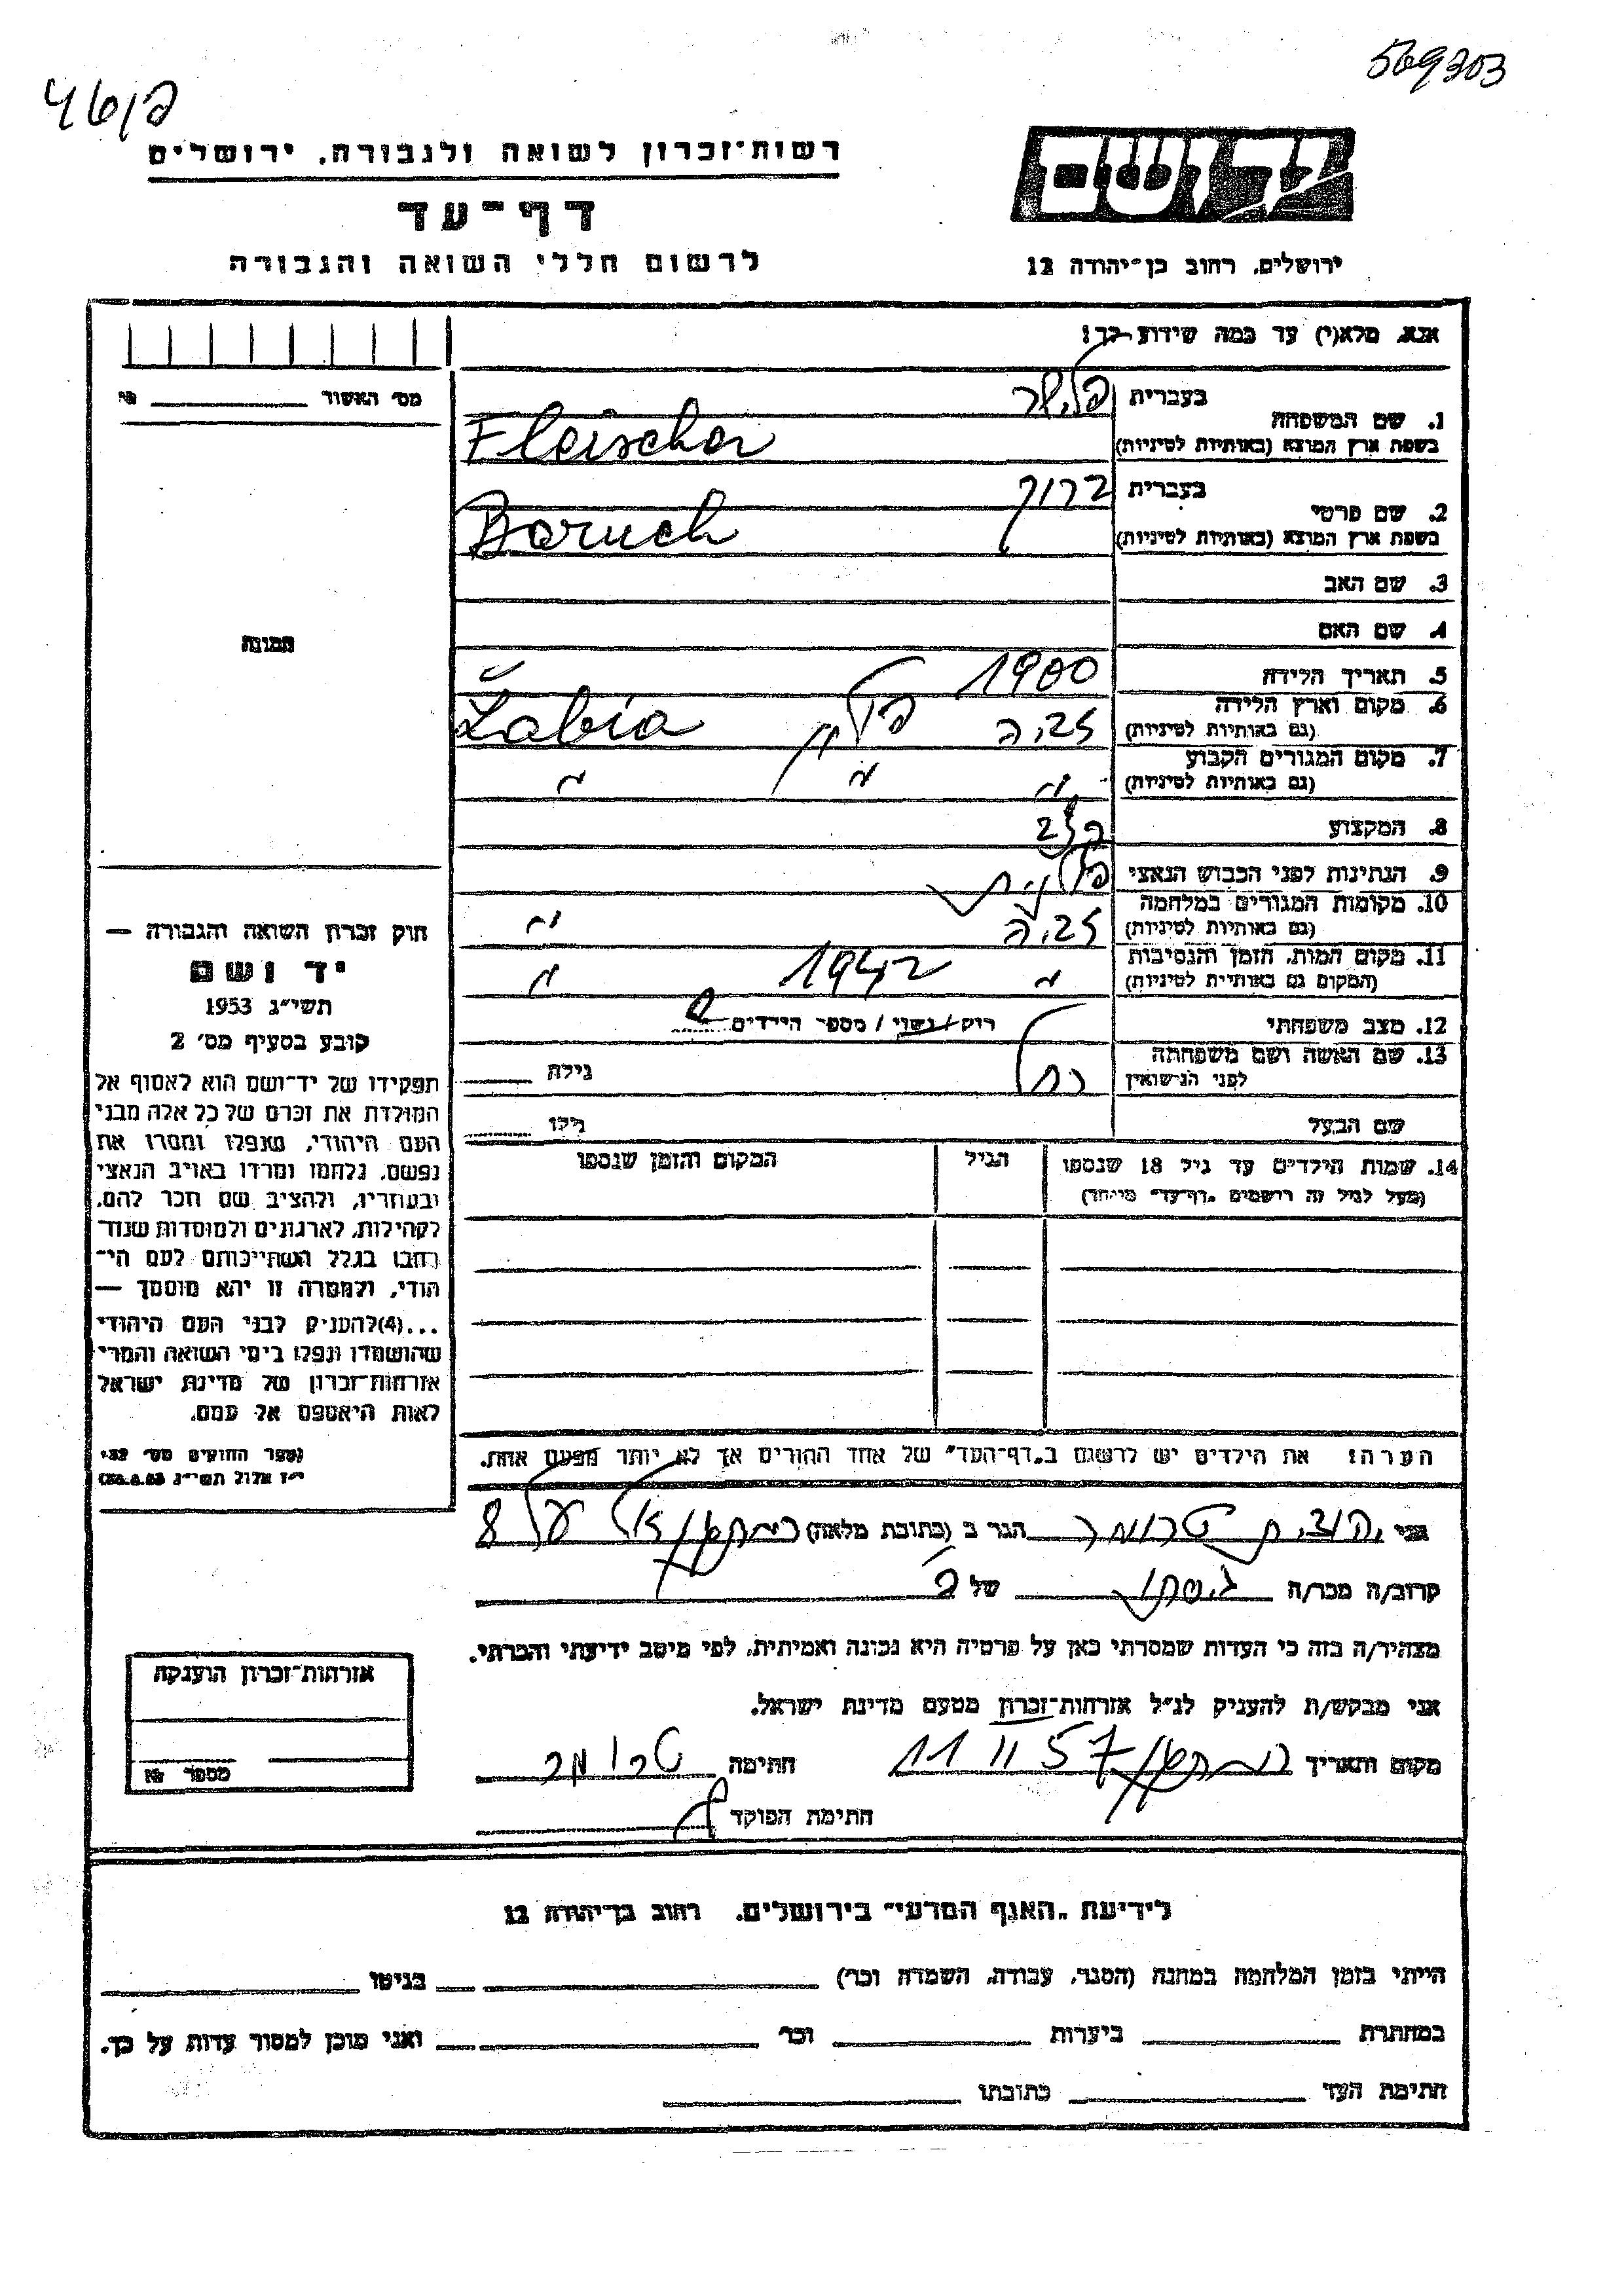 569303
46/פ
רשות־זכרון לשואה ולגבורה, ירושלים
יד ושם
דף־עד
ירושלים, רחוב בן־יהודה 12
לרשום חללי השואה והגבורה
אנא, מלא(י) עד כמה שידוע לך!
מס׳ האשור
1. שם המשפחה
בעברית פלישר
בשפת ארץ המוצא (באותיות לטיניות) Fleischer
2. שם פרטי
בעברית ברוך
בשפת ארץ המוצא (באותיות לטיניות) Baruch
3. שם האב
4. שם האם
תמונה
5. תאריך הלידה 1900
6. מקום וארץ הלידה
(גם באותיות לטיניות) פולין Żabia
7. מקום המגורים הקבוע
(גם באותיות לטיניות) " " "
8. המקצוע
9. הנתינות לפני הכבוש הנאצי פולנית
10. מקומות המגורים במלחמה
(גם באותיות לטיניות) "
11. מקום המות, הזמן והנסיבות
(המקום גם באותיות לטיניות) " 1942 "
12. מצב משפחתי רוק/נשוי/מספר הילדים
13. שם האשה ושם משפחתה
לפני הנישואין גילה
שם הבעל גילו
14. שמות הילדים עד גיל 18 שנספו הגיל המקום והזמן שנספו
(מעל לגיל זה רושמים „דף־עד” מיוחד)
חוק זכרון השואה והגבורה —
יד ושם
תשי״ג 1953
קובע בסעיף מס׳ 2
תפקידו של יד־ושם הוא לאסוף אל
המולדת את זכרם של כל אלה מבני
העם היהודי, שנפלו ומסרו את
נפשם, נלחמו ומרדו באויב הנאצי
ובעוזריו, ולהציב שם וזכר להם,
לקהילות, לארגונים ולמוסדות שנ־
חרבו בגלל השתייכותם לעם הי־
הודי, ולמטרה זו יהא מוסמך —
...(4) להעניק לבני העם היהודי
שהושמדו ונפלו בימי השואה והמרי
אזרחות־זכרון של מדינת ישראל
לאות היאספם אל עמם.
(ספר החוקים מס׳ 132,
י״ז אלול תשי״ג 28.8.53)
הערה: את הילדים יש לרשום ב„דף־העד” של אחד ההורים אך לא יותר מפעם אחת.
אני יהודית שטרומר הגר ב (כתובת מלאה) 8
קרוב/ה מכר/ה גיסתו של
מצהיר/ה בזה כי העדות שמסרתי כאן על פרטיה היא נכונה ואמיתית, לפי מיטב ידיעתי והכרתי.
אני מבקש/ת להעניק לנ״ל אזרחות־זכרון מטעם מדינת ישראל.
מקום ותאריך 11 II 57 חתימה שטרומר
חתימת הפוקד
אזרחות־זכרון הוענקה
מספר
לידיעת „האגף המדעי” בירושלים, רחוב בן־יהודה 12
הייתי בזמן המלחמה במחנה (הסגר, עבודה, השמדה וכו׳) בגיטו
במחתרת ביערות וכו׳ ואני מוכן למסור עדות על כך.
חתימת העד כתובתו